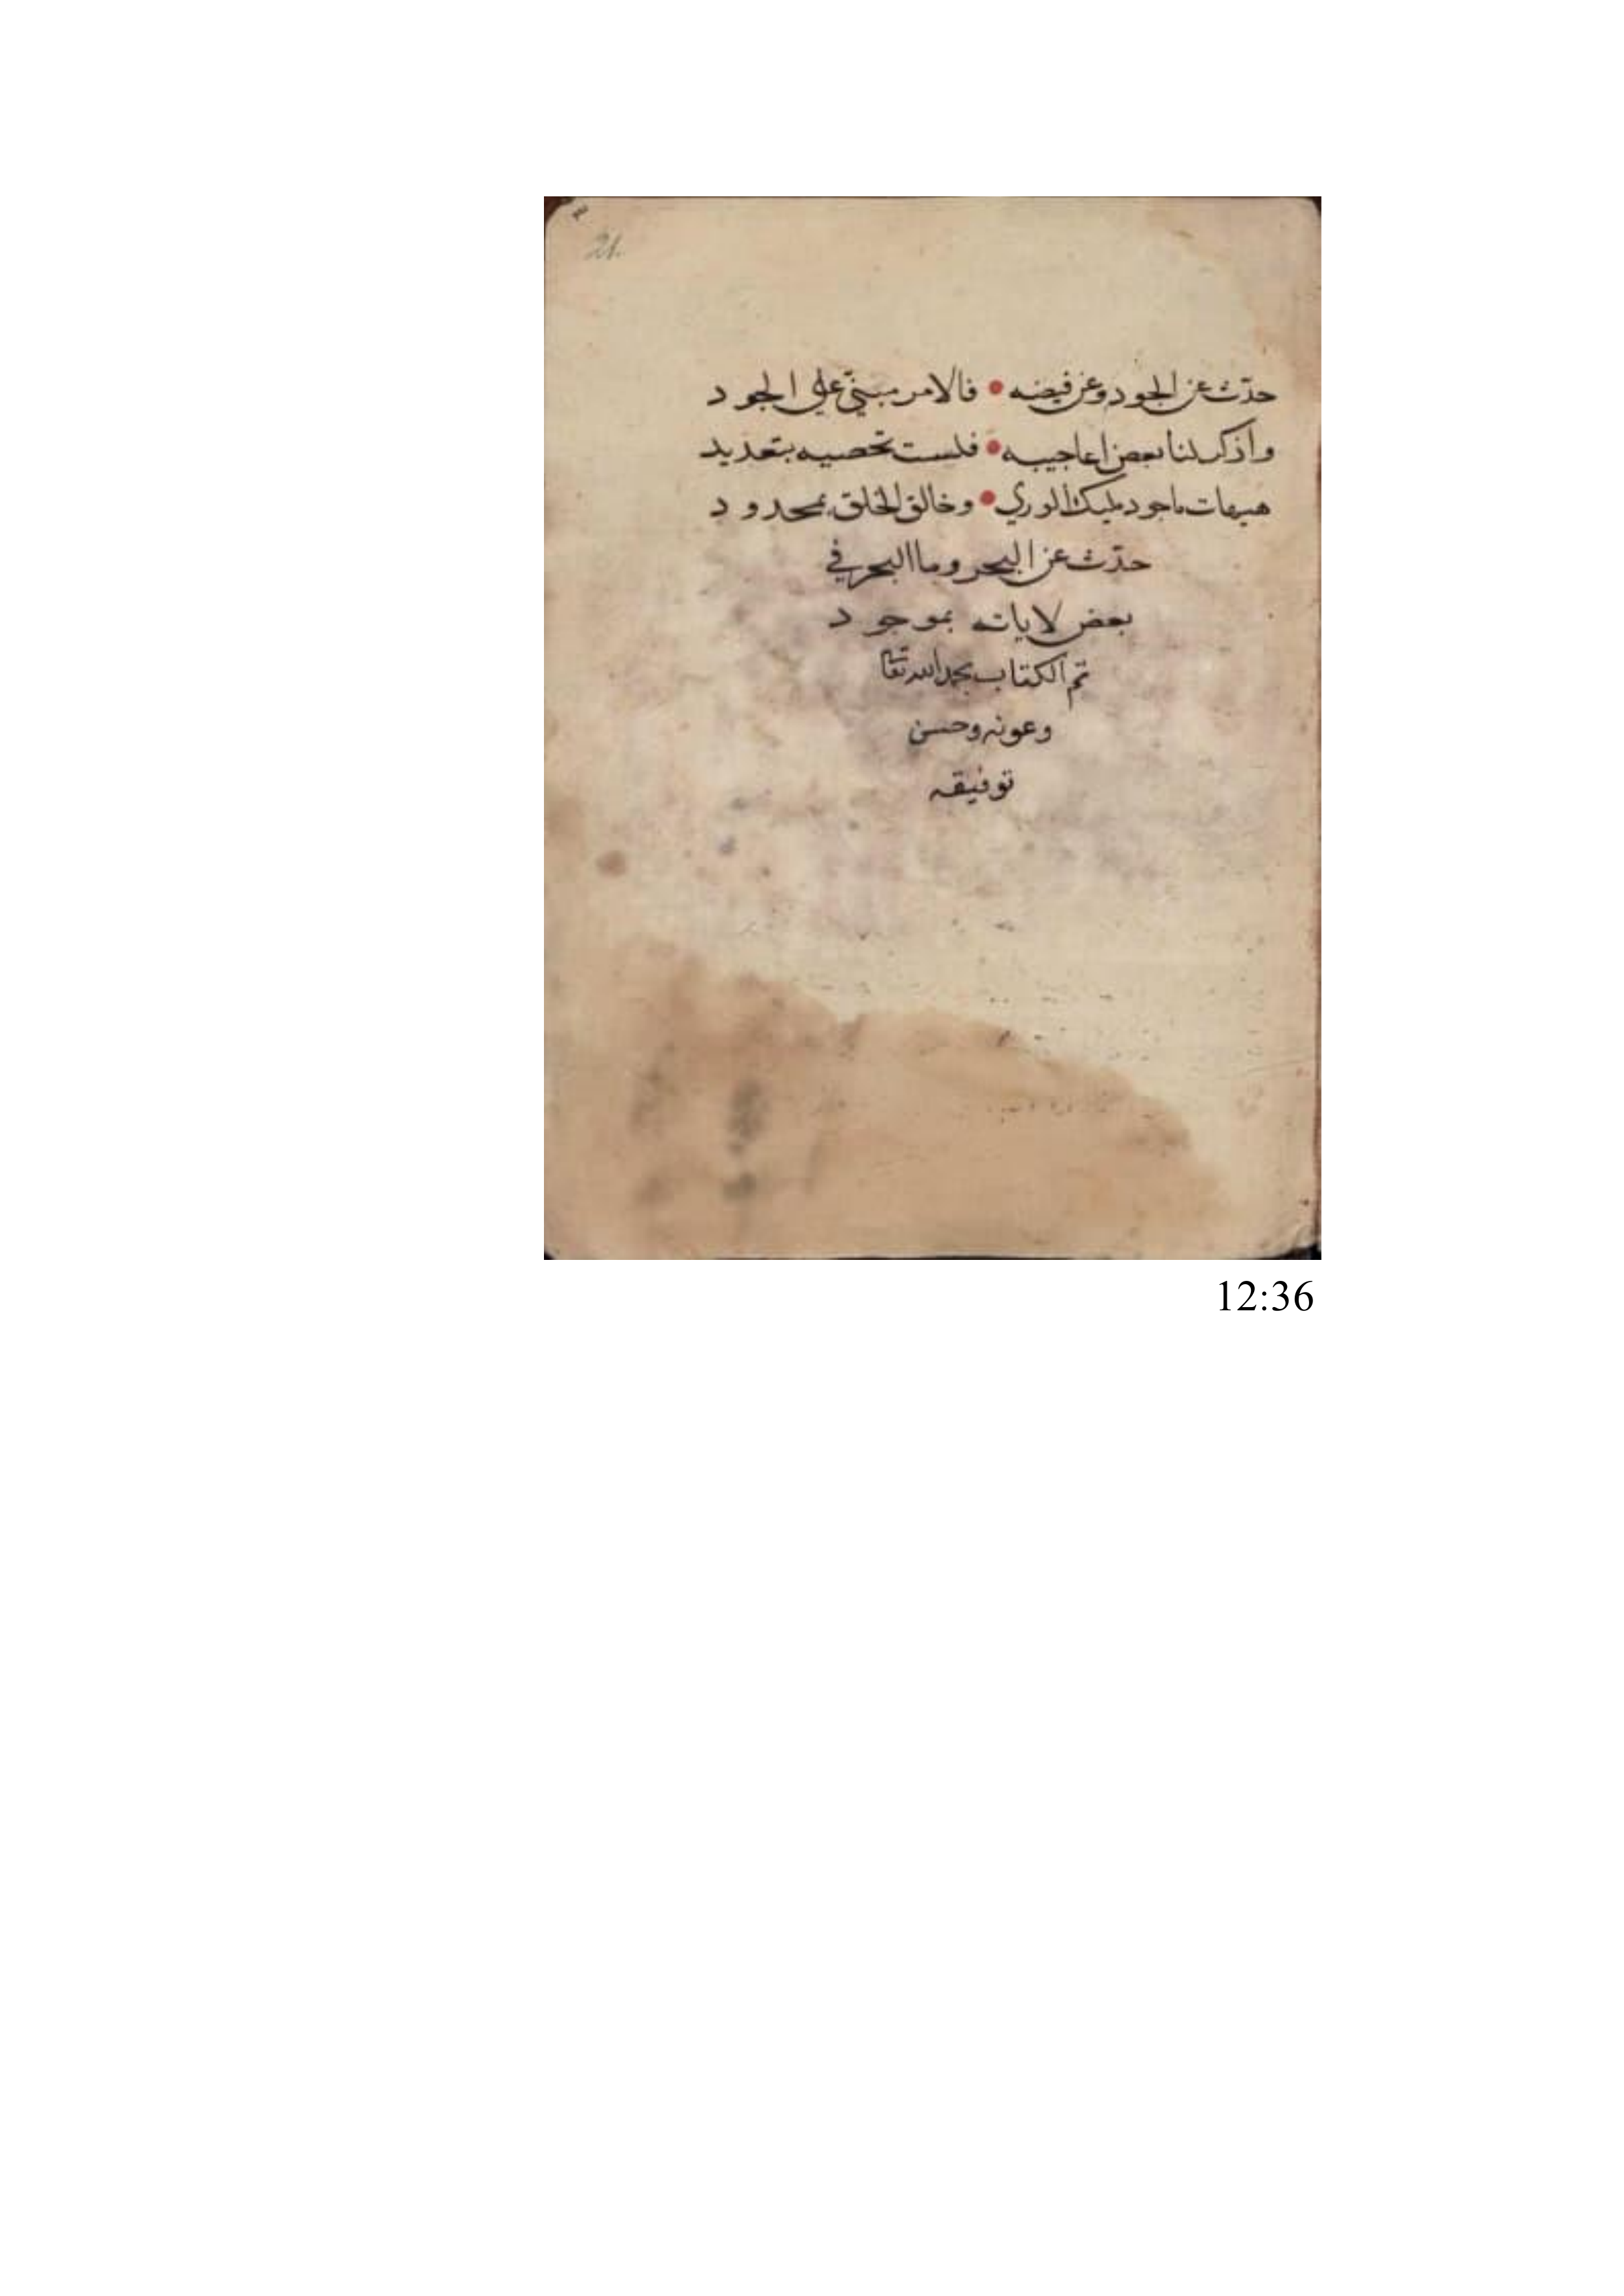 21.
حدّث عن الجود وعن فيضه • فالامر مبنيّ علي الجود
واذكر لنا بعض اعاجيبه • فلست تحصيه بتعديد
هيهات ماجود مليك الوري • وخالق الخلق بمحدود
حدّث عن البحر وما البحر في
بعض لاياته بموجود
تم الكتاب بحمد الله تعا
وعونه وحسن
توفيقه
12:36